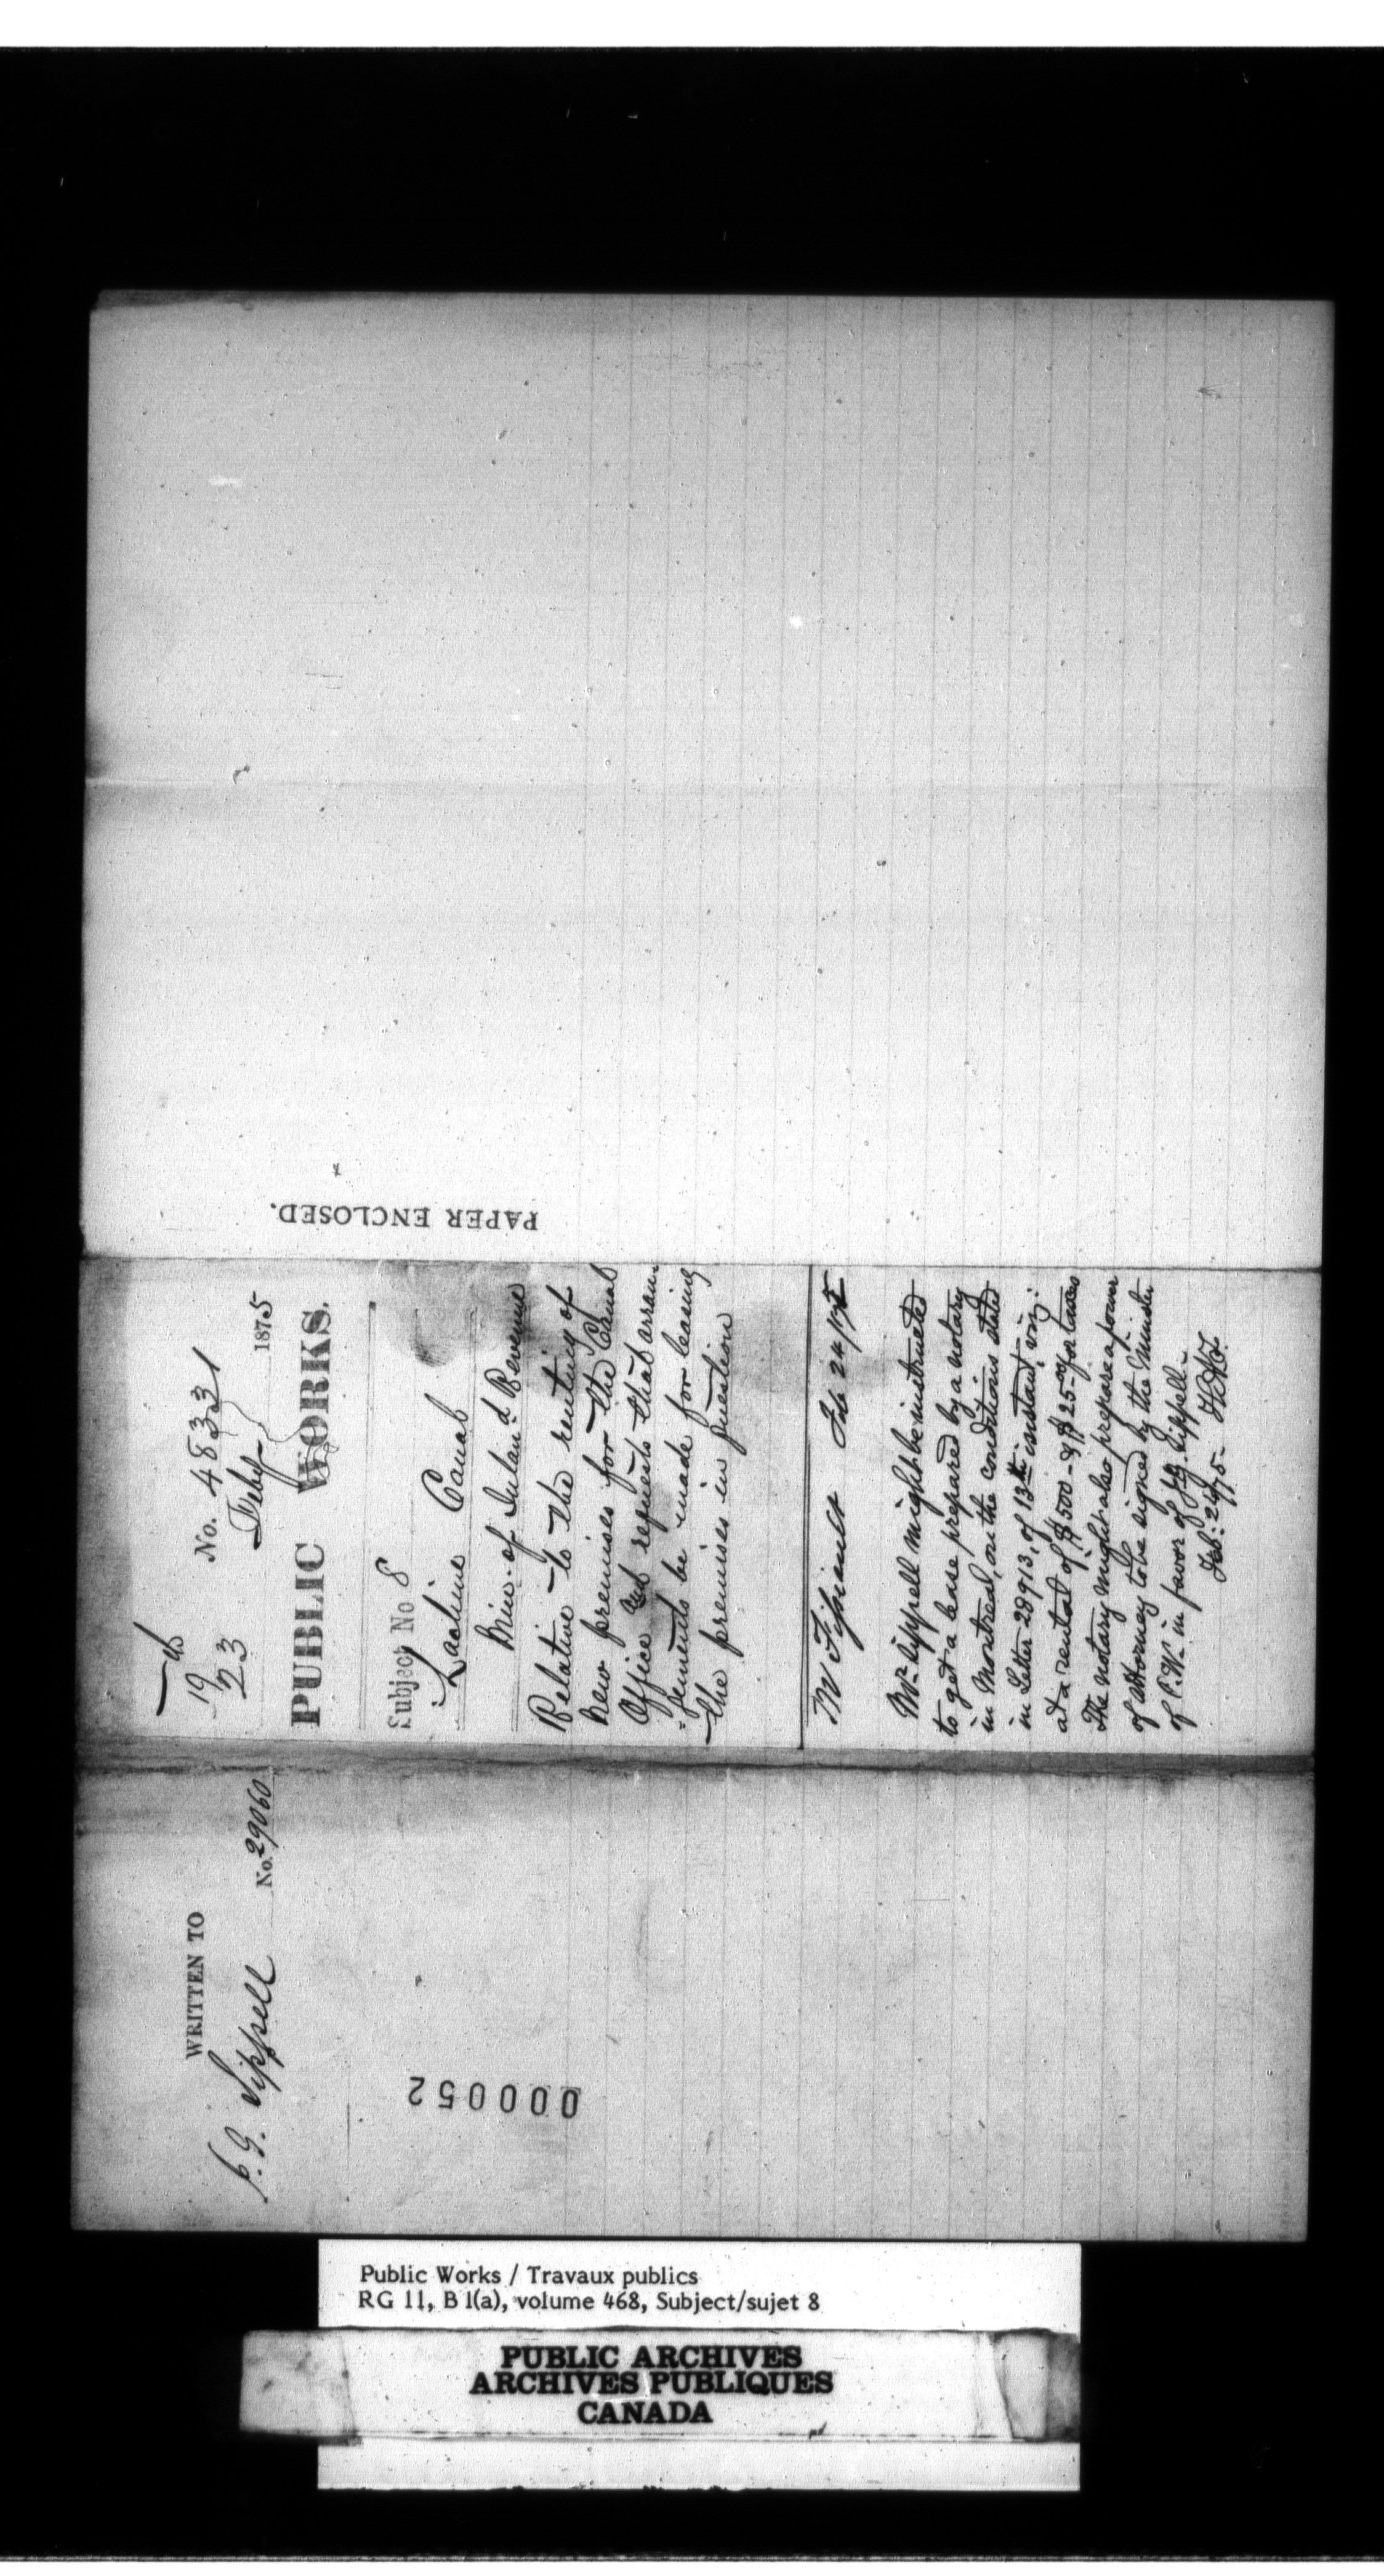 19
23
No. 48331
Feby 1875
PUBLIC WORKS.
Subject No 8
Lachine Canal
Min. of Inland Revenue
Relative to the renting of
new premises for the Canal
Office and requests that arran-
=gements be made for leasing
the premises in question
Feb 24/75
Mr Sippell might be instructed
to get a lease prepared by a notary
in Montreal, on the conditions stated
in Letter 28913, of 13th instant, viz:
at a rental of $500 - & $25 - for taxes
The notary might also prepare a power
of attorney to be signed by the Minister
of P.W. in favor of Sippell -
Feb: 24/75 -
PAPER ENCLOSED.
WRITTEN TO
G. Sippell No. 29060
000052
Public Works / Travaux publics
RG 11, B 1(a), volume 468, Subject/sujet 8
PUBLIC ARCHIVES
ARCHIVES PUBLIQUES
CANADA